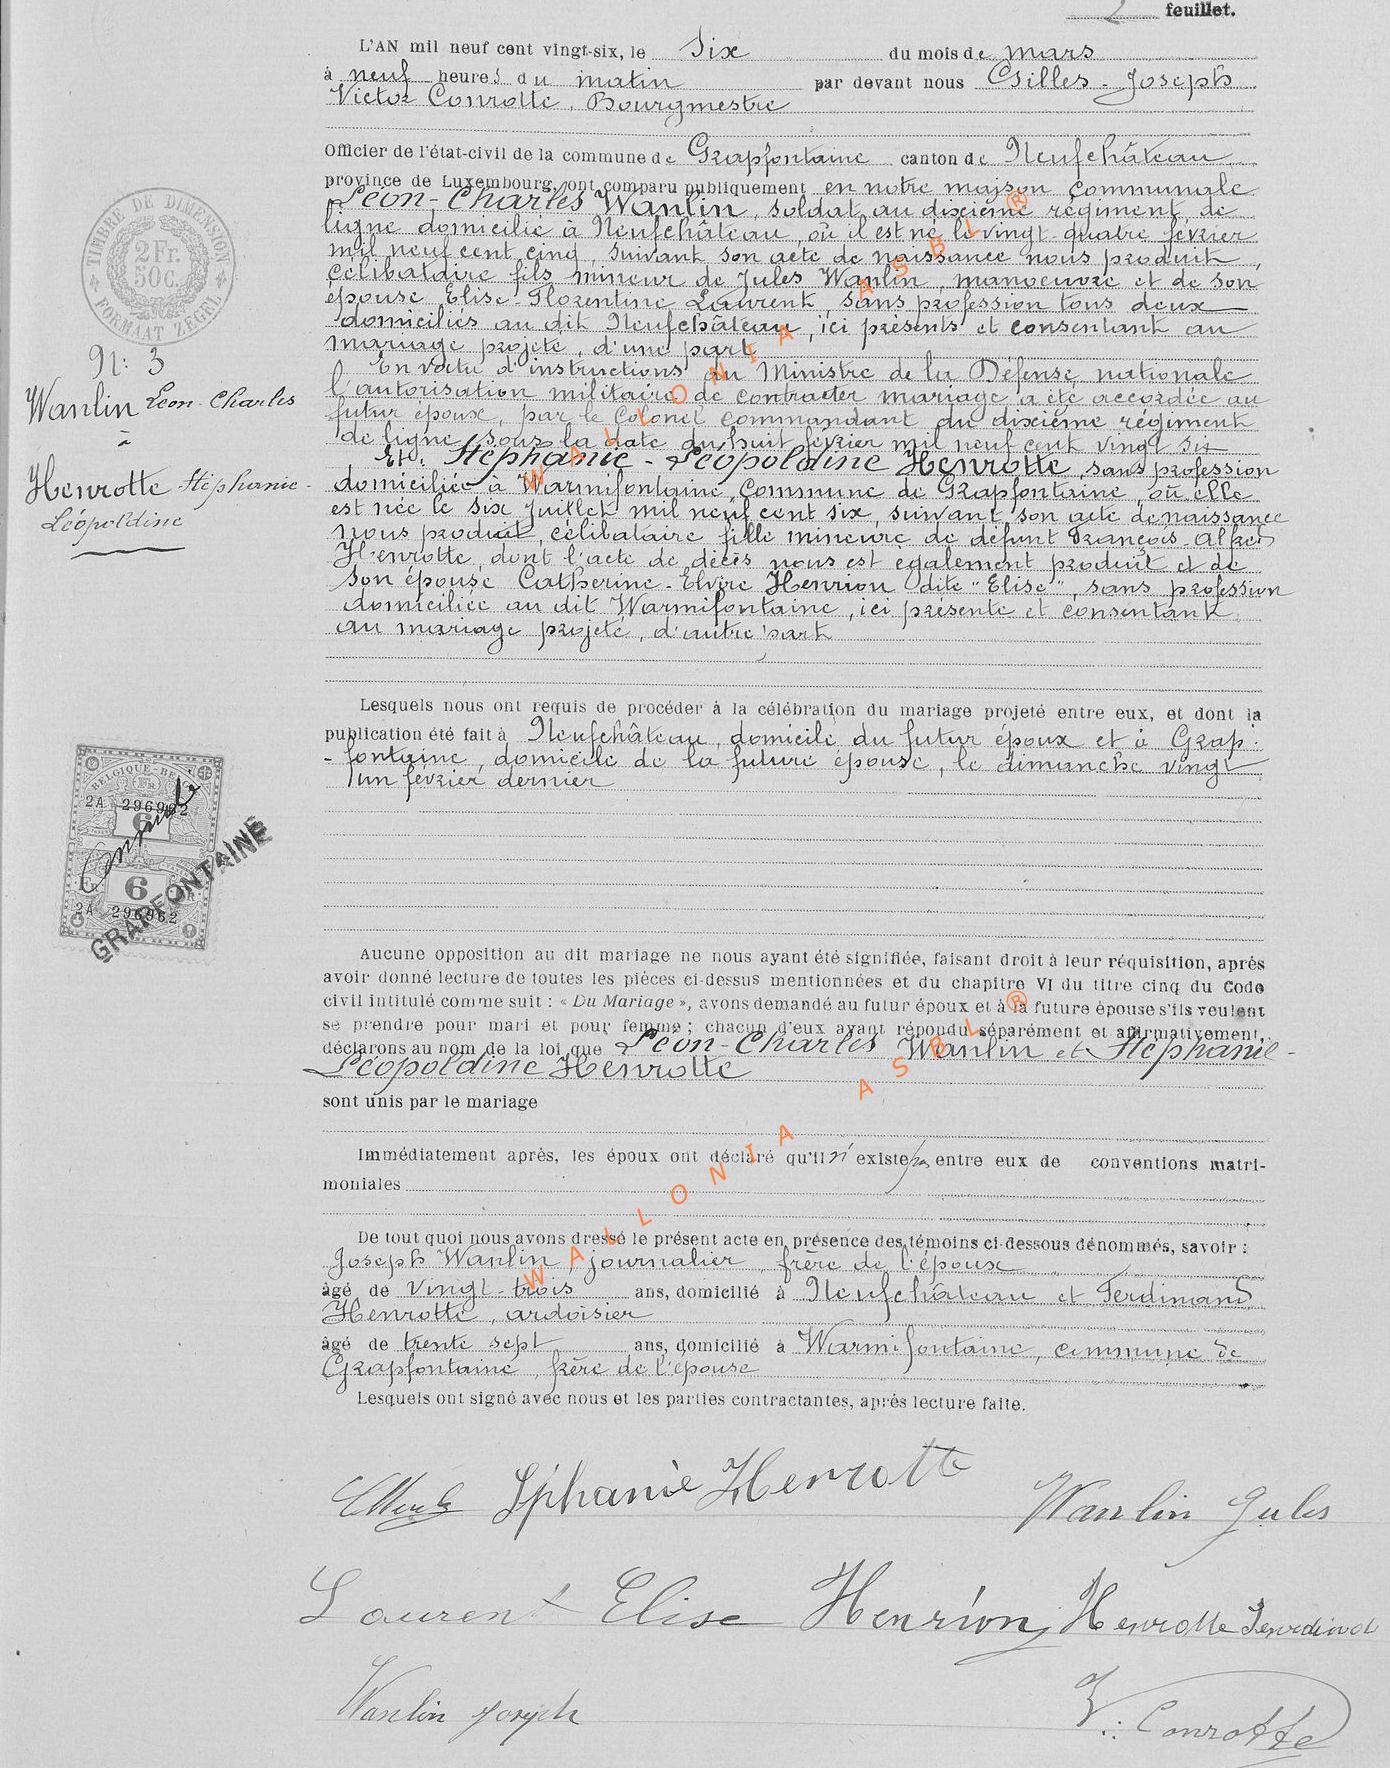 2 feuillet.
L'AN mil neuf cent vingt-six, le Six du mois de mars
à neuf heures du matin par devant nous Gilles-Joseph
Victor Conrotte, Bourgmestre
Officier de l'état-civil de la commune de Grapfontaine canton de Neufchâteau
province de Luxembourg, ont comparu publiquement en notre maison communale
Léon-Charles Wanlin, soldat au dixième régiment de
ligne domicilié à Neufchâteau, où il est né le vingt-quatre février
mil neuf cent cinq, suivant son acte de naissance nous produit,
célibataire fils mineur de Jules Wanlin, manoeuvre et de son
épouse Elise-Florentine Laurent, sans profession tous deux
domiciliés au dit Neufchâteau, ici présents et consentant au
mariage projeté, d'une part
En vertu d'instructions du Ministre de la Défense nationale
l'autorisation militaire de contracter mariage a été accordée au
futur époux, par le Colonel commandant du dixième régiment
de ligne, sous la date du huit février mil neuf cent vingt six
Et. Stéphanie-Léopoldine Henrotte, sans profession
domiciliée à Warmifontaine, Commune de Grapfontaine, où elle
est née le six Juillet mil neuf cent six, suivant son acte de naissance
nous produit, célibataire fille mineure de défunt François-Alfred
Henrotte, dont l'acte de décès nous est également produit et de
son épouse Catherine-Elvire Henrion dite "Elise", sans profession
domiciliée au dit Warmifontaine, ici présente et consentant
au mariage projeté, d'autre part
TIMBRE DE DIMENSION
2 Fr.
50c.
FORMAAT ZEGEL
N: 3
Wanlin Léon-Charles
à
Henrotte Stéphanie-
Léopoldine
Lesquels nous ont requis de procéder à la célébration du mariage projeté entre eux, et dont la
publication été fait à Neufchâteau, domicile du futur époux et à Grap-
-fontaine, domicile de la future épouse, le dimanche vingt
un février dernier
BELGIQUE-BE
FR
2A 296962
6
FR 6 FR
2A 296962
GRAPFONTAINE
Aucune opposition au dit mariage ne nous ayant été signifiée, faisant droit à leur réquisition, après
avoir donné lecture de toutes les pièces ci-dessus mentionnées et du chapitre VI du titre cinq du Code
civil intitulé comme suit : « Du Mariage », avons demandé au futur époux et à la future épouse s'ils veulent
se prendre pour mari et pour femme ; chacun d'eux ayant répondu séparément et affirmativement,
déclarons au nom de la loi que Léon-Charles Wanlin et Stéphanie-
Léopoldine Henrotte
sont unis par le mariage
Immédiatement après, les époux ont déclaré qu'il n'existe pas entre eux de conventions matri-
moniales
De tout quoi nous avons dressé le présent acte en présence des témoins ci-dessous dénommés, savoir :
Joseph Wanlin, journalier, frère de l'époux
âgé de vingt-trois ans, domicilié à Neufchâteau et Ferdinand
Henrotte, ardoisier
âgé de trente sept ans, domicilié à Warmifontaine, commune de
Grapfontaine, frère de l'épouse
Lesquels ont signé avec nous et les parties contractantes, après lecture faite.
Sphanie Henrotte Wanlin Jules
Laurent Elise Henrion Henrotte Ferdinand
Wanlin Joseph V. Conrotte
WALLONIA ASBL ®
WALLONIA ASBL ®